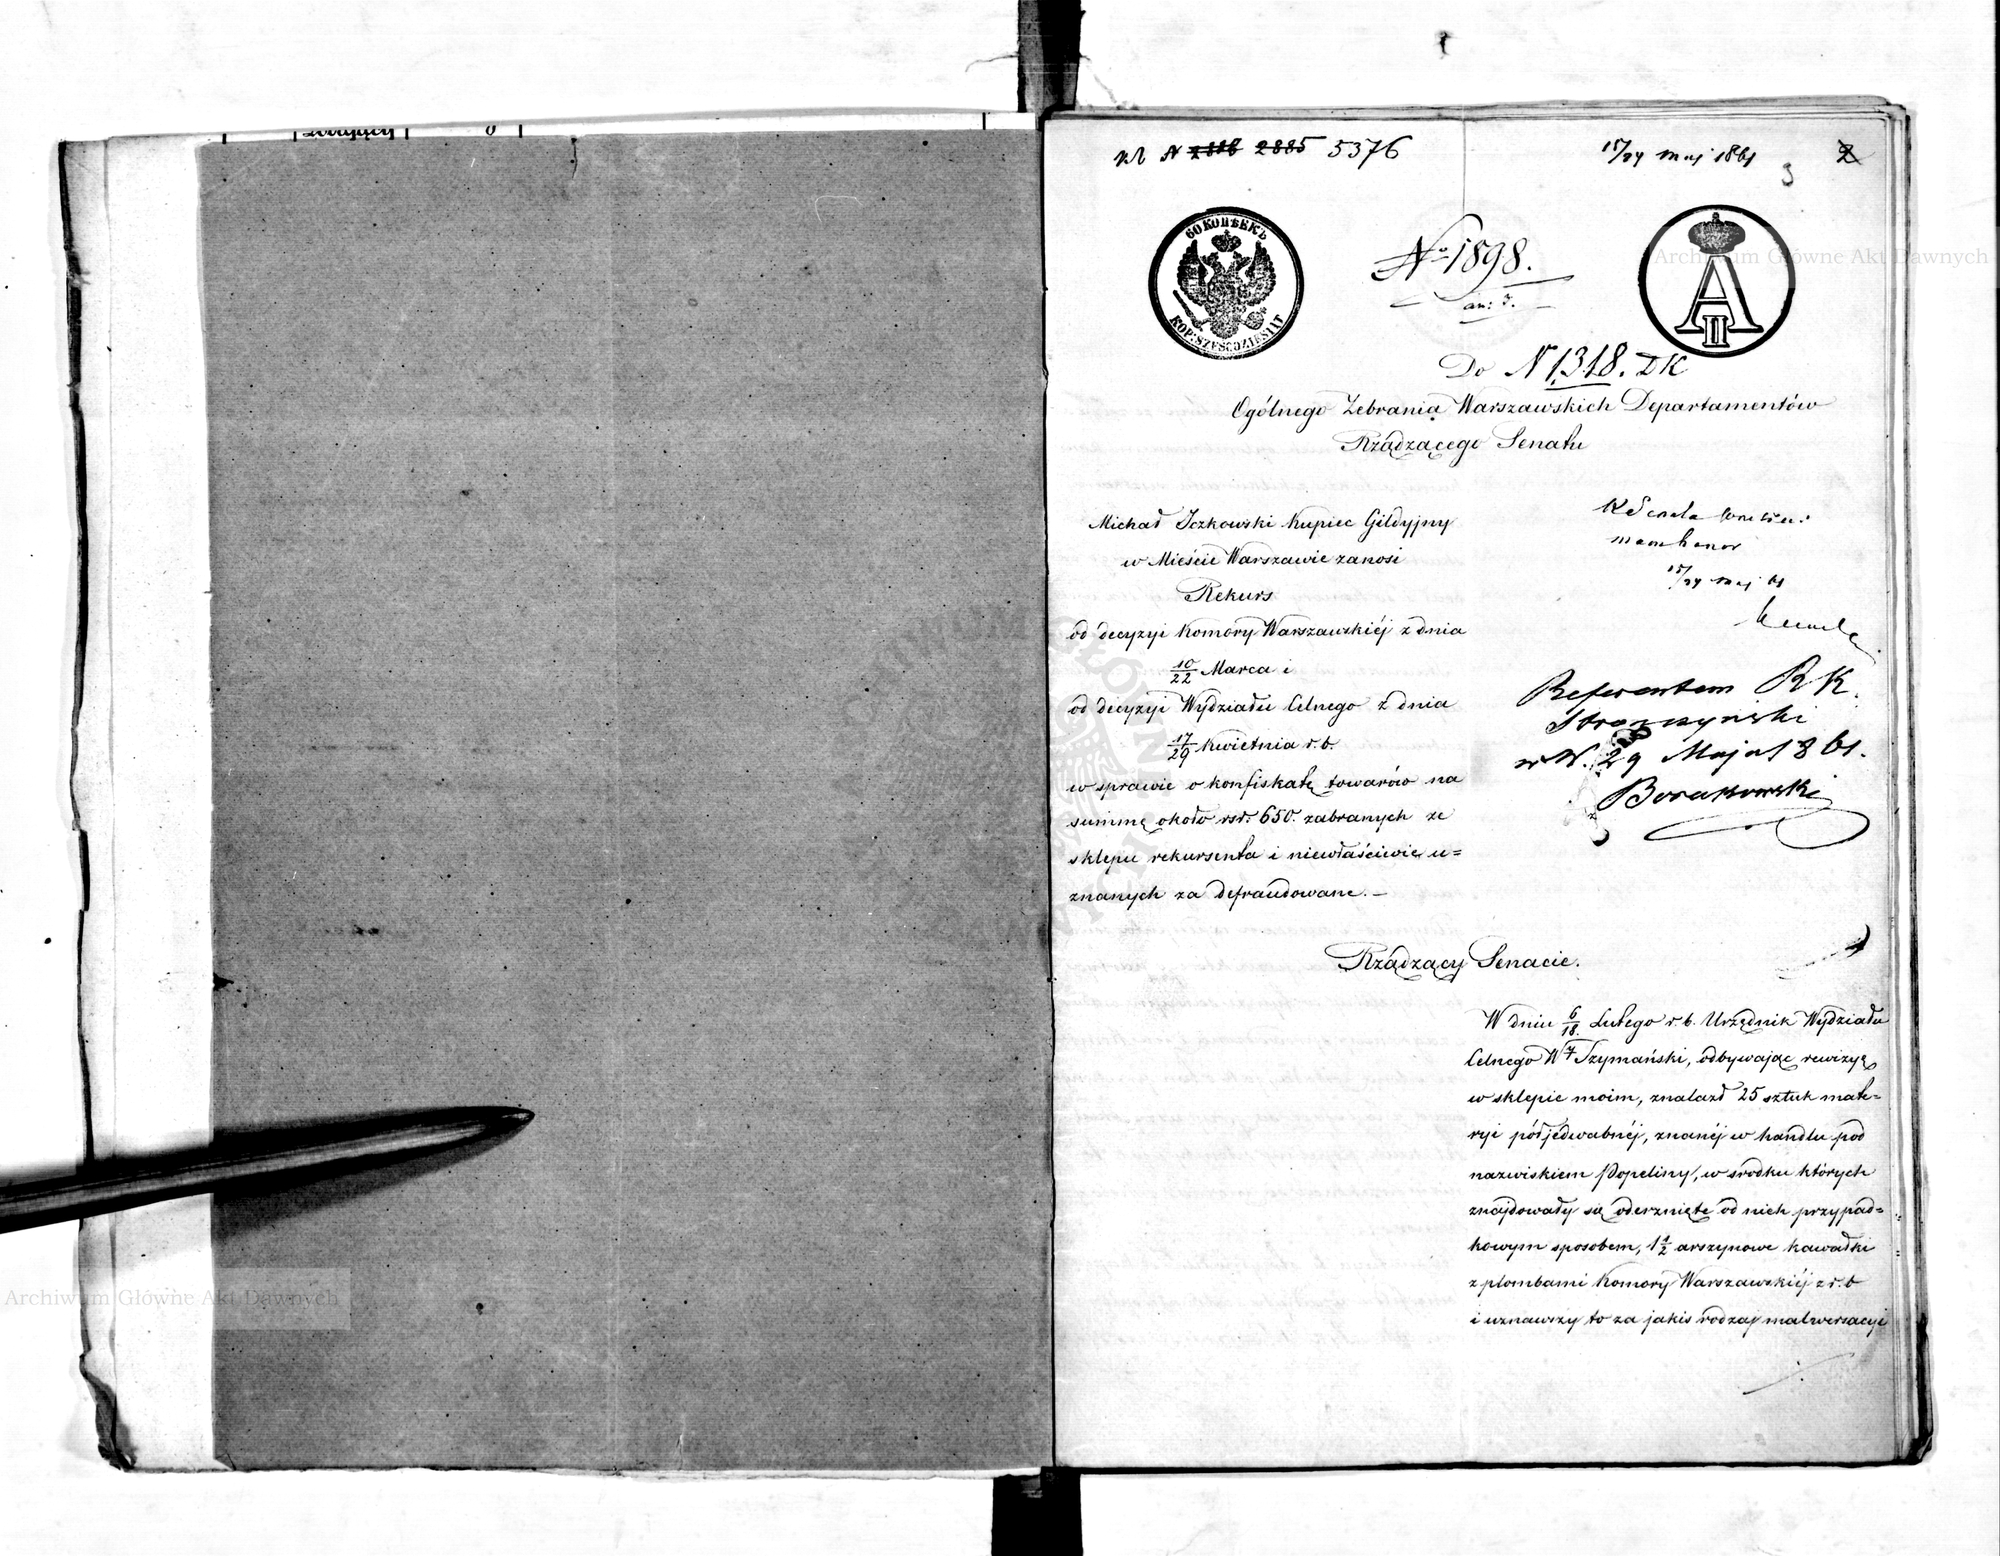 N 2886 2885 5376
15/27 maj 1861
2
3
60 КОПѢЕКЪ
KOP. SZEŚĆDZIESIĄT
A II
No 1898.
an: 3.
Do N 1318. DK
Ogólnego Zebrania Warszawskich Departamentów
Rządzącego Senatu
Michał Iczkowski Kupiec Gildyjny
w Mieście Warszawie zanosi
Rekurs
od decyzyi Komory Warszawskiéj z dnia
10/22 Marca i
od decyzyi Wydziału Celnego z dnia
17/29 Kwietnia r. b.
w sprawie o konfiskatę towarów na
summę około rsr. 650. zabranych ze
sklepu rekursenta i niewłaściwie u=
znanych za defraudowane. —
K Senata
15/27 maj 61
Referentem R K.
Stronczyński
w W. 29 Maja 1861.
Borakowski
Rządzący Senacie.
W dniu 6/18 Lutego r. b. Urzędnik Wydziału
Celnego W. Szymański, odbywając rewizyę
w sklepie moim, znalazł 25 sztuk mate=
ryi półjedwabnéj, znanéj w handlu pod
nazwiskiem Popeliny, w środku których
znajdowały się oderznięte od nich przypad=
kowym sposobem, 1 1/2 arszynowe kawałki
z plombami Komory Warszawskiéj z r. b
i uznawszy to za jakiś rodzaj malwersacyi
Archiwum Główne Akt Dawnych
Archiwum Główne Akt Dawnych